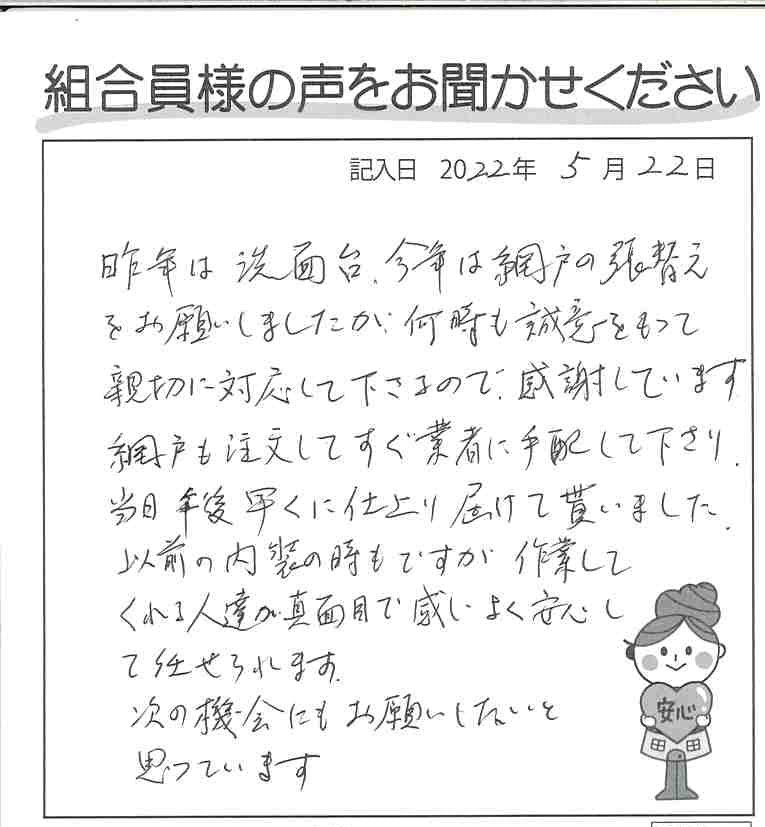 組合員様の声をお聞かせください
記入日 2022年 5月22日
昨年は洗面台、今年は網戸の張替え
をお願いしましたが、何時も誠意をもって
親切に対応して下さるので、感謝しています
網戸も注文してすぐ業者に手配して下さり、
当日午後早くに仕上り届けて貰いました。
以前の内装の時もですが作業して
くれる人達が真面目で感じよく安心し
て任せられます。
次の機会にもお願いしたいと
思っています
安心